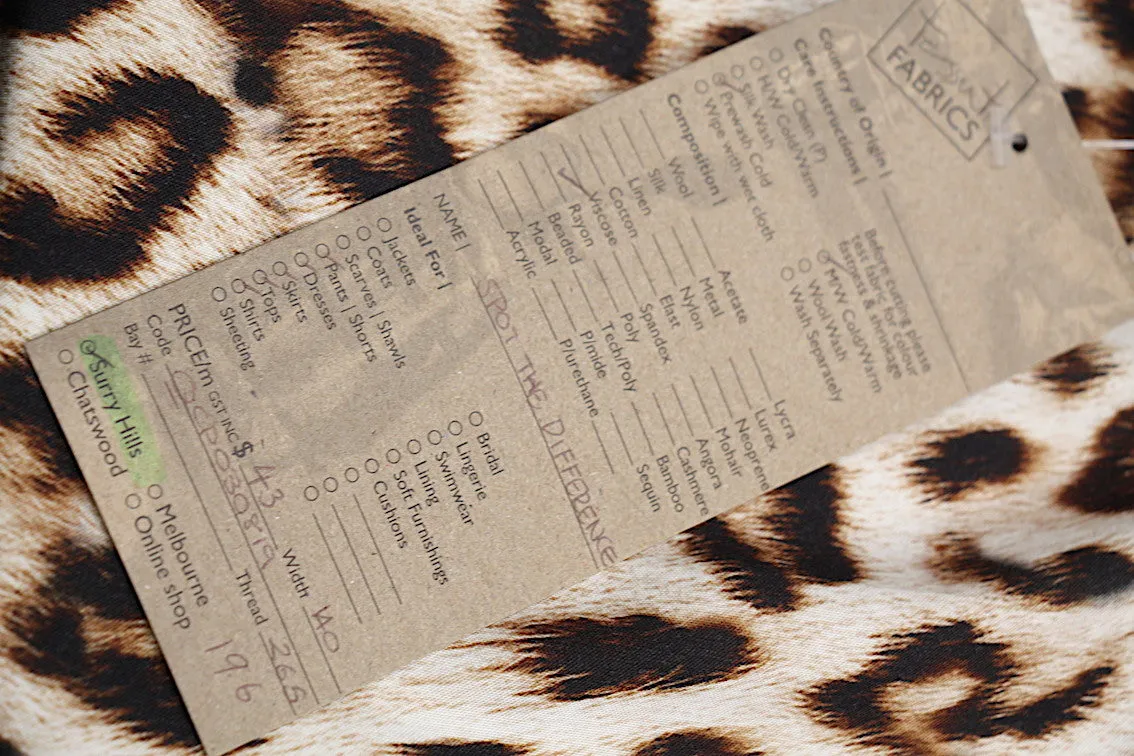 FABRICS
Country of Origin |
Care Instructions |
Dry Clean (P)
H/W Cold/Warm
Silk Wash
Prewash Cold
Wipe with wet cloth
Before cutting please
test fabric for colour
fastness & shrinkage
M/W Cold/Warm
Wool Wash
Wash Separately
Composition |
Wool
Silk
Linen
Cotton
Viscose
Rayon
Beaded
Modal
Acrylic
Acetate
Metal
Nylon
Elast
Spandex
Poly
Tech/Poly
P/mide
P/urethane
Lycra
Lurex
Neoprene
Mohair
Angora
Cashmere
Bamboo
Sequin
NAME | SPOT THE DIFFERENCE
Ideal For |
Jackets
Coats
Scarves | Shawls
Pants | Shorts
Dresses
Skirts
Tops
Shirts
Sheeting
Bridal
Lingerie
Swimwear
Lining
Soft Furnishings
Cushions
PRICE/m GST INC $ 43 Width 140
Code Thread 265
Bay #
Surry Hills
Chatswood
Melbourne
Online shop
196